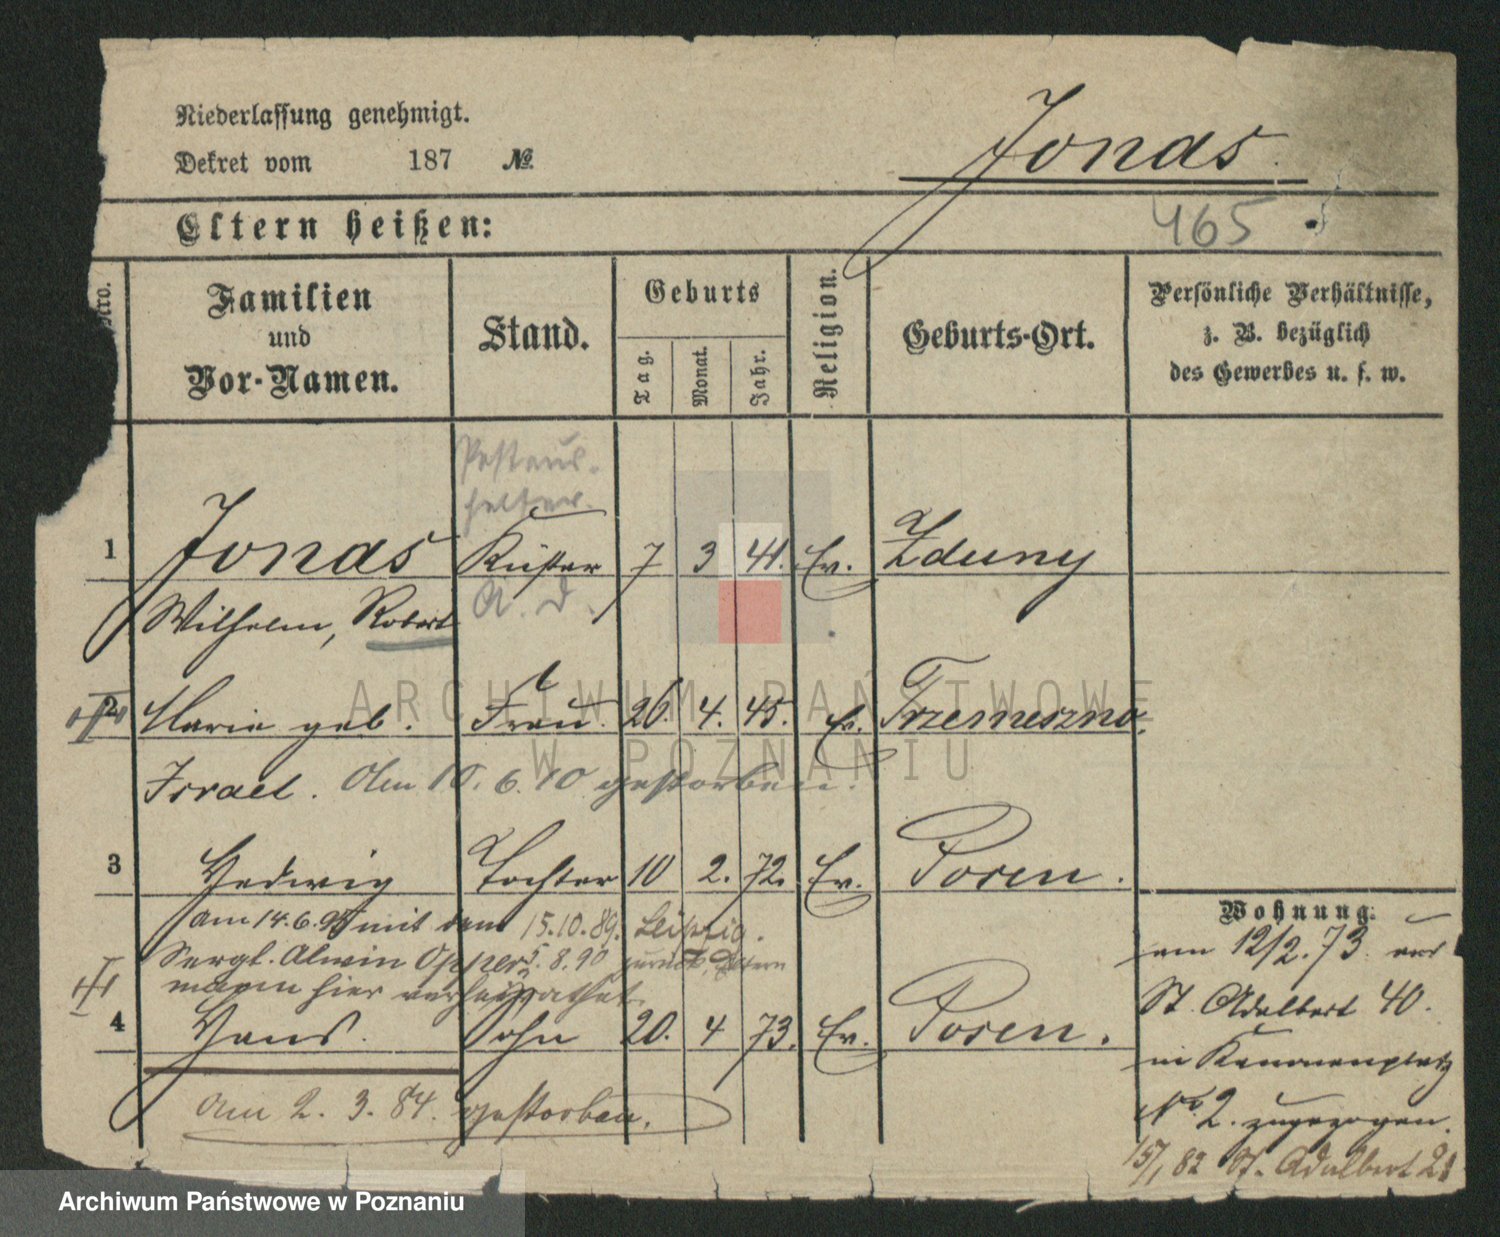 Niederlassung genehmigt.
Dekret vom 187 №.
Jonas.
465
Eltern heißen:
Nro.
Familien und Vor-Namen.
Stand.
Geburts
Tag.
Monat.
Jahr.
Religion.
Geburts-Ort.
Persönliche Verhältnisse,
z. B. bezüglich
des Gewerbes u. s. w.
Postaus-
helfer.
1 Jonas Küster 7 3 41. Ev. Zduny
Wilhelm, Robert a. D.
2 Marie geb. Frau. 26. 4. 45. Ev. Trzemeszno.
Israel. Am 10. 6. 10 gestorben.
3 Hedwig Tochter 10 2. 72. Ev. Posen.
am 14.6.95 mit dem 15.10.89. Leipzig.
Sergt. Alwin Opper- 5.8.90 zurück, Eltern
mann hier verheirathet.
4 Hans. Sohn 20. 4 73. Ev. Posen.
Am 2. 3. 84. gestorben.
Wohnung:
am 12/2. 73. von
St. Adalbert 40.
in Kanonenplatz
No. 2. zugezogen.
15/1 82 St. Adalbert 21
ARCHIWUM PAŃSTWOWE
W POZNANIU
Archiwum Państwowe w Poznaniu